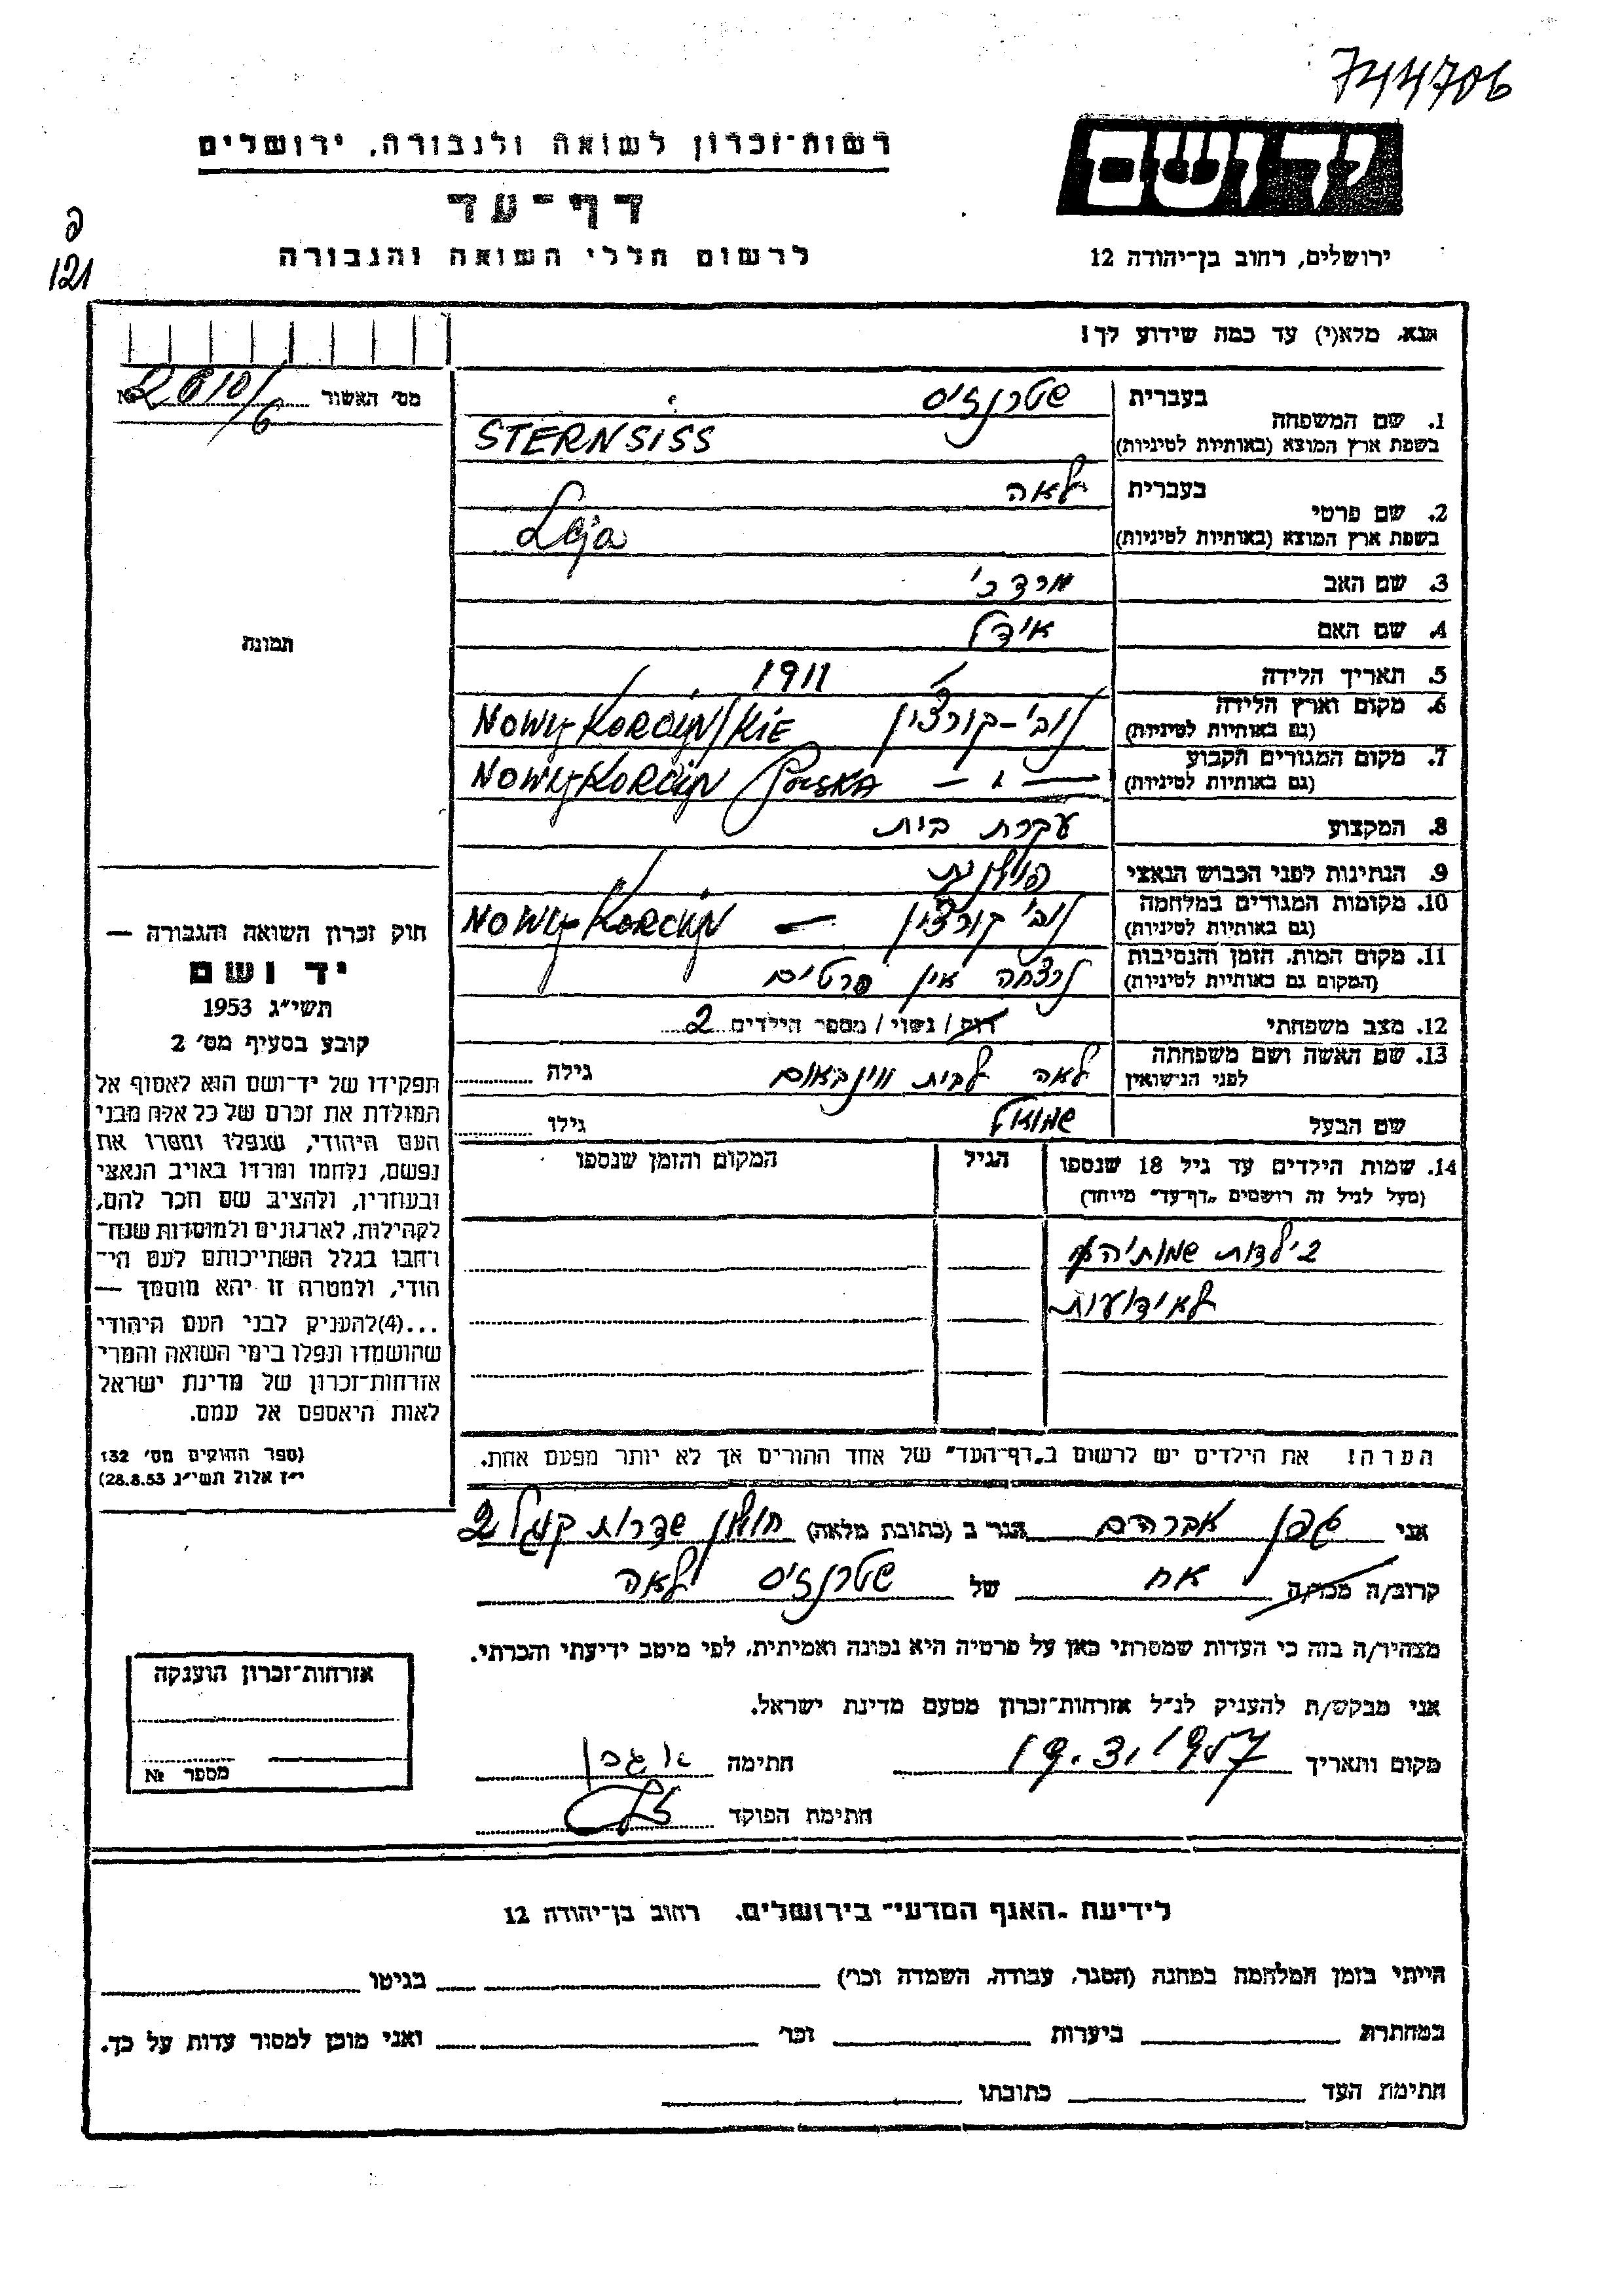 744706
רשות־זכרון לשואה ולגבורה, ירושלים
יד ושם
דף־עד
לרשום חללי השואה והגבורה
ירושלים, רחוב בן־יהודה 12
פ
121
אנא, מלא(י) עד כמה שידוע לך!
מס' האשור № 2810/6
בעברית שטרנזיס
1. שם המשפחה
בשפת ארץ המוצא (באותיות לטיניות) STERNSISS
בעברית לאה
2. שם פרטי
בשפת ארץ המוצא (באותיות לטיניות) Leja
3. שם האב מרדכי
4. שם האם אידל
5. תאריך הלידה 1911
6. מקום וארץ הלידה נובי-קורצין NOWY-KORCZYN/KIE
(גם באותיות לטיניות)
7. מקום המגורים הקבוע — " — NOWY-KORCZYN POLSKA
(גם באותיות לטיניות)
8. המקצוע עקרת בית
9. הנתינות לפני הכבוש הנאצי פולנית
10. מקומות המגורים במלחמה נובי קורצין — NOWY-KORCZYN
(גם באותיות לטיניות)
11. מקום המות, הזמן והנסיבות נרצחה אין פרטים
(המקום גם באותיות לטיניות)
12. מצב משפחתי רוק / נשוי / מספר הילדים 2
13. שם האשה ושם משפחתה לאה לבית ווינבאום גילה
לפני הנישואין
שם הבעל שמואל גילו
14. שמות הילדים עד גיל 18 שנספו הגיל המקום והזמן שנספו
(מעל לגיל זה רושמים "דף־עד" מיוחד)
2 ילדות שמותיהן
לא ידועות
הערה: את הילדים יש לרשום ב"דף־העד" של אחד ההורים אך לא יותר מפעם אחת.
תמונה
חוק זכרון השואה והגבורה —
יד ושם
תשי"ג 1953
קובע בסעיף מס' 2
תפקידו של יד־ושם הוא לאסוף אל
המולדת את זכרם של כל אלה מבני
העם היהודי, שנפלו ומסרו את
נפשם, נלחמו ומרדו באויב הנאצי
ובעוזריו, ולהציב שם וזכר להם,
לקהילות, לארגונים ולמוסדות שנח־
רבו בגלל השתייכותם לעם הי־
הודי, ולמטרה זו יהא מוסמך —
...(4)להעניק לבני העם היהודי
שהושמדו ונפלו בימי השואה והמרי
אזרחות־זכרון של מדינת ישראל
לאות היאספם אל עמם.
(ספר החוקים מס' 132
י"ז אלול תשי"ג 28.8.53)
אני אברהם הגר ב (כתובת מלאה) חולון שדרות קוגל 2
קרוב/ה מכר/ה אח של שטרנזיס לאה
מצהיר/ה בזה כי העדות שמסרתי כאן על פרטיה היא נכונה ואמיתית, לפי מיטב ידיעתי והכרתי.
אני מבקש/ת להעניק לנ"ל אזרחות־זכרון מטעם מדינת ישראל.
מקום ותאריך 19.3.1957 חתימה
חתימת הפוקד
אזרחות־זכרון הוענקה
מספר №
לידיעת "האגף המדעי" בירושלים, רחוב בן־יהודה 12
הייתי בזמן המלחמה במחנה (הסגר, עבודה, השמדה וכו') בגיטו
במחתרת ביערות וכו' ואני מוכן למסור עדות על כך.
חתימת העד כתובתו